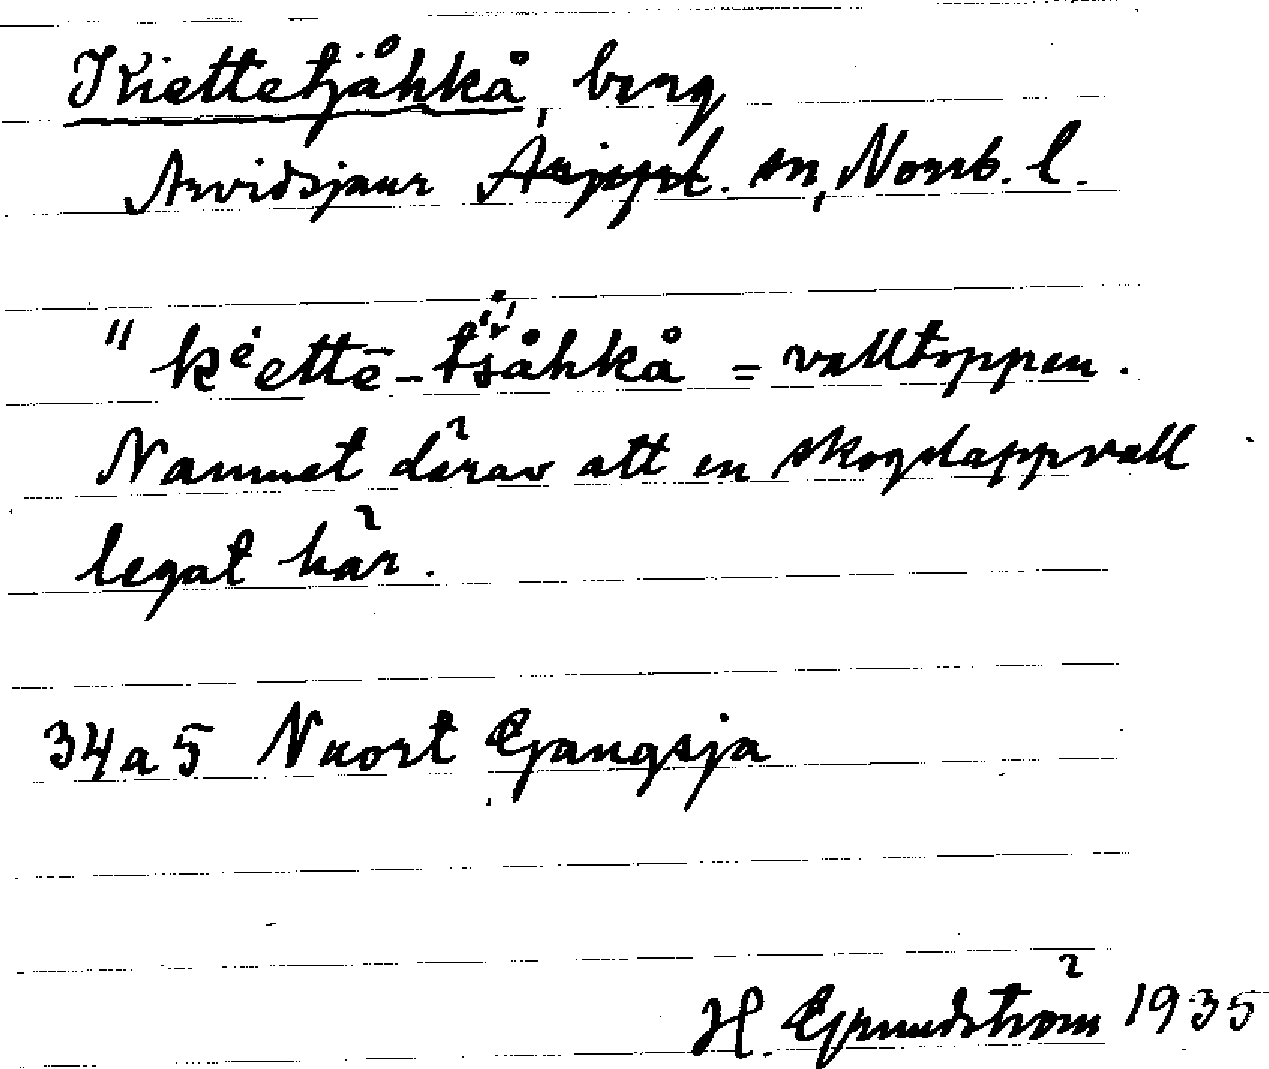 Kiettetjåhkå, berg
Arvidsjaur Arjepl. sn, Norrb. l.
" kėettē-tsåhkå = valltoppen.
Namnet därav att en skogslappvall
legat här.
34a5 Nuort Gangsja
H. Grundström 1935